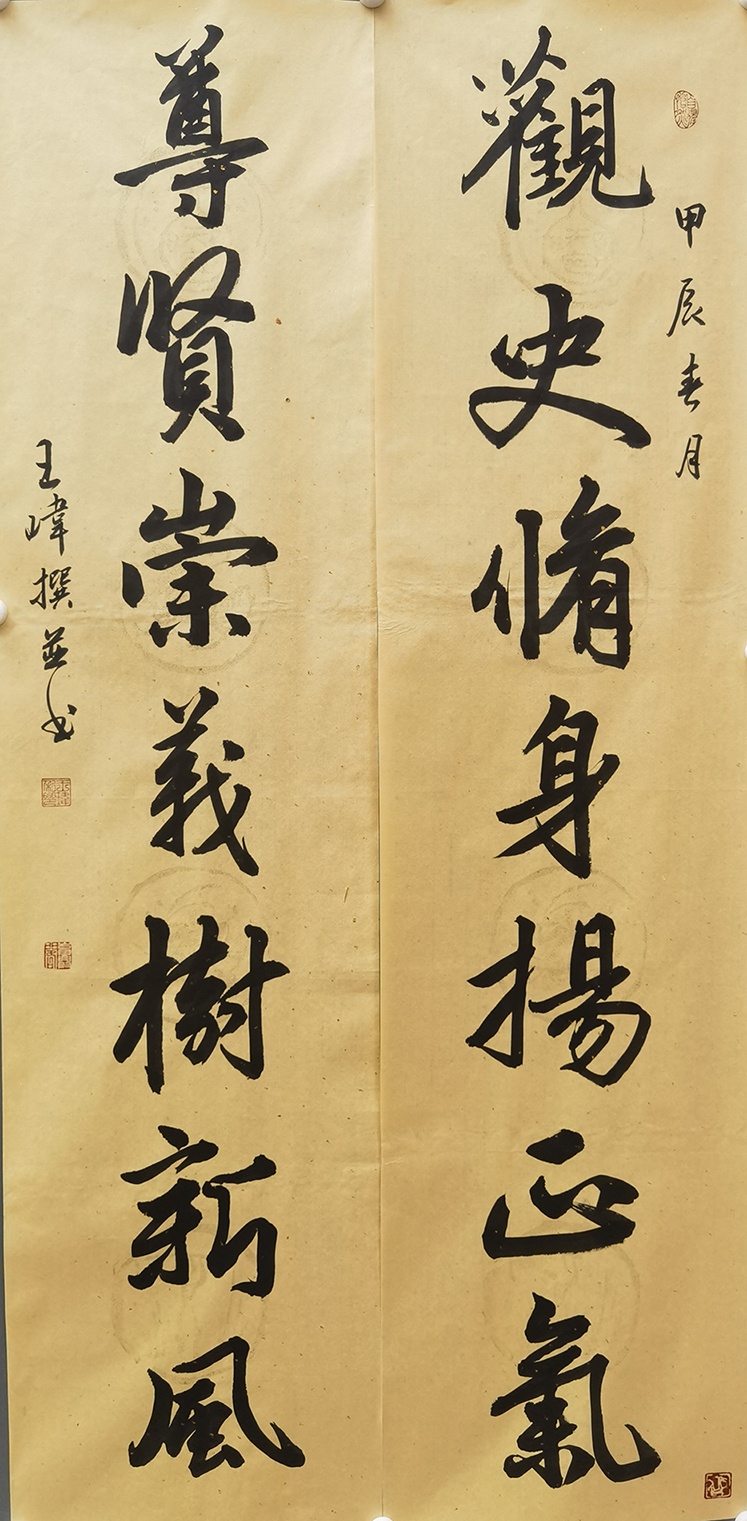 甲辰春月
觀史脩身揚正氣
尊賢崇義樹新風
王暐撰並书